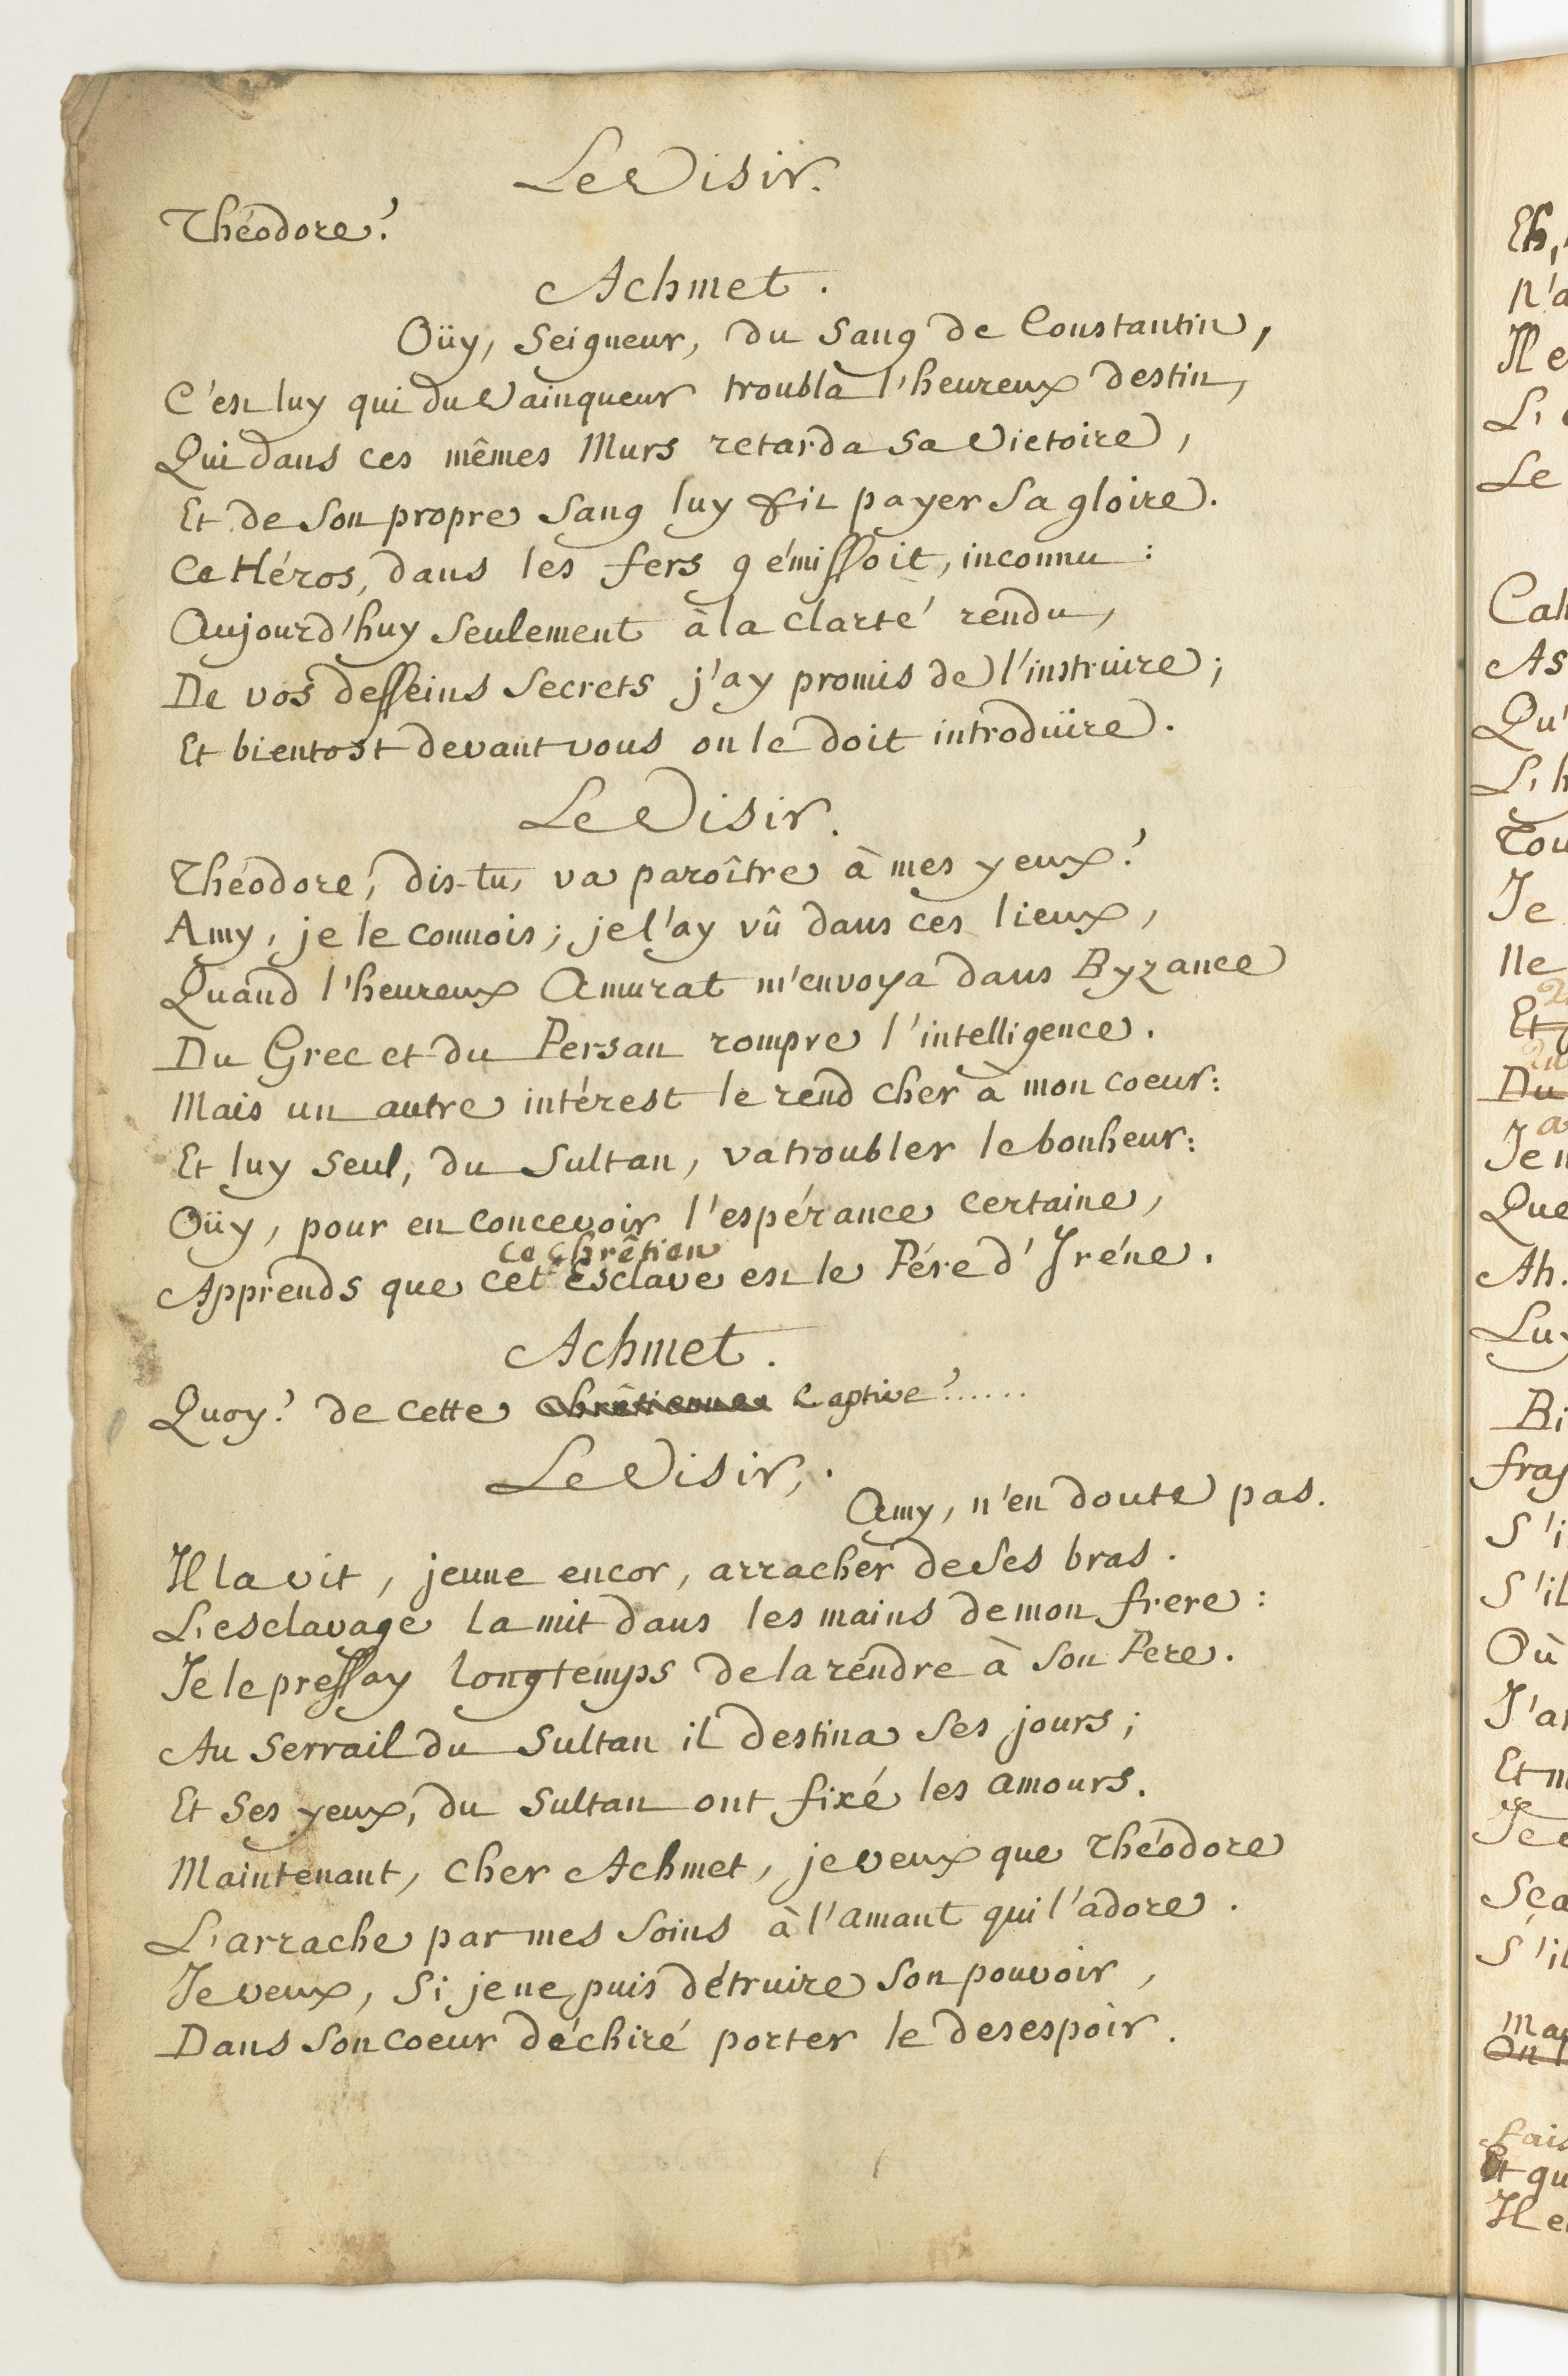 Le Visir.
Théodore?
Achmet.
Oüy, Seigneur, du Sang de Constantin,
C'est luy qui du Vainqueur troubla l'heureux destin,
Qui dans ces mêmes Murs retarda sa Victoire,
Et de son propre Sang luy fit payer sa gloire.
Ce Héros, dans les fers gémissoit, inconnu:
Aujourd'huy seulement à la clarté rendu,
De vos desseins secrets j'ay promis de l'instruire;
Et bientost devant vous on le doit introdüire.
Le Visir.
Théodore, dis-tu, va paroître à mes yeux?
Amy, je le connois; je l'ay vû dans ces lieux,
Quand l'heureux Amurat m'envoya dans Byzance
Du Grec et du Persan rompre l'intelligence.
Mais un autre intérest le rend cher à mon coeur:
Et luy seul, du Sultan, va troubler le bonheur:
Oüy, pour en concevoir l'espérance certaine,
ce Chrêtien
Apprends que cet Esclave est le Pére d'Iréne.
Achmet.
Quoy? de cette Chrêtienne Captive?.....
Le Visir,.
Amy, n'en doute pas.
Il la vit, jeune encor, arracher de ses bras.
L'esclavage la mit dans les mains de mon frere:
Je le pressay longtemps de la rendre à son Pere.
Au Serrail du Sultan il destina ses jours;
Et ses yeux, du Sultan ont fixé les amours.
Maintenant, cher Achmet, je veux que Théodore
L'arrache par mes soins à l'amant qui l'adore.
Je veux, si je ne puis détruire son pouvoir,
Dans son coeur déchiré porter le desespoir.